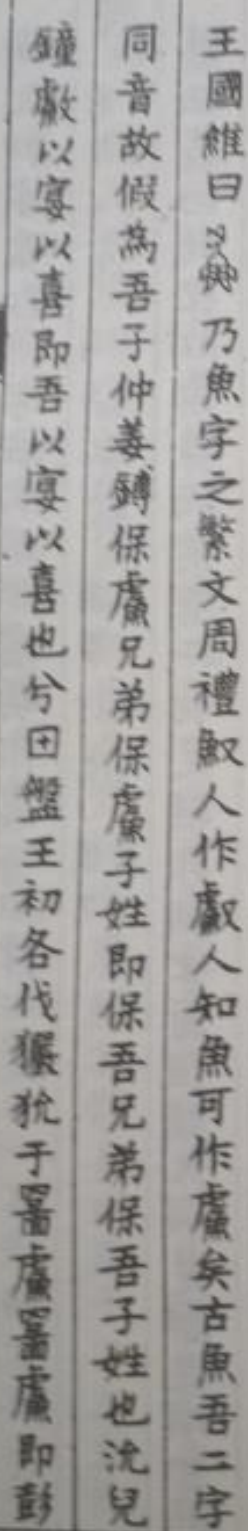 王國維曰乃魚字之繁文周禮䱷人作𩼪人知魚可作䲣矣古魚吾二字
同音故假為吾子仲姜鎛保䲣兄弟保䲣子姓即保吾兄弟保吾子姓也沇兒
鐘䖒以宴以喜即吾以宴以喜也兮田盤王初各伐玁狁于䣙䲣即彭